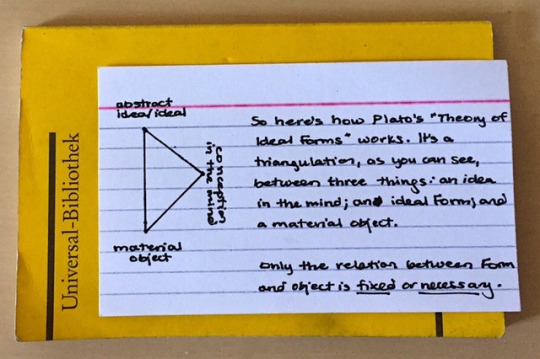 Universal-Bibliothek
abstract
idea/ideal
conception
in the mind
material
object
So here's how Plato's "Theory of
Ideal Forms" works. It's a
triangulation, as you can see,
between three things: an idea
in the mind; an ideal Form; and
a material object.
Only the relation between Form
and object is fixed or necessary.